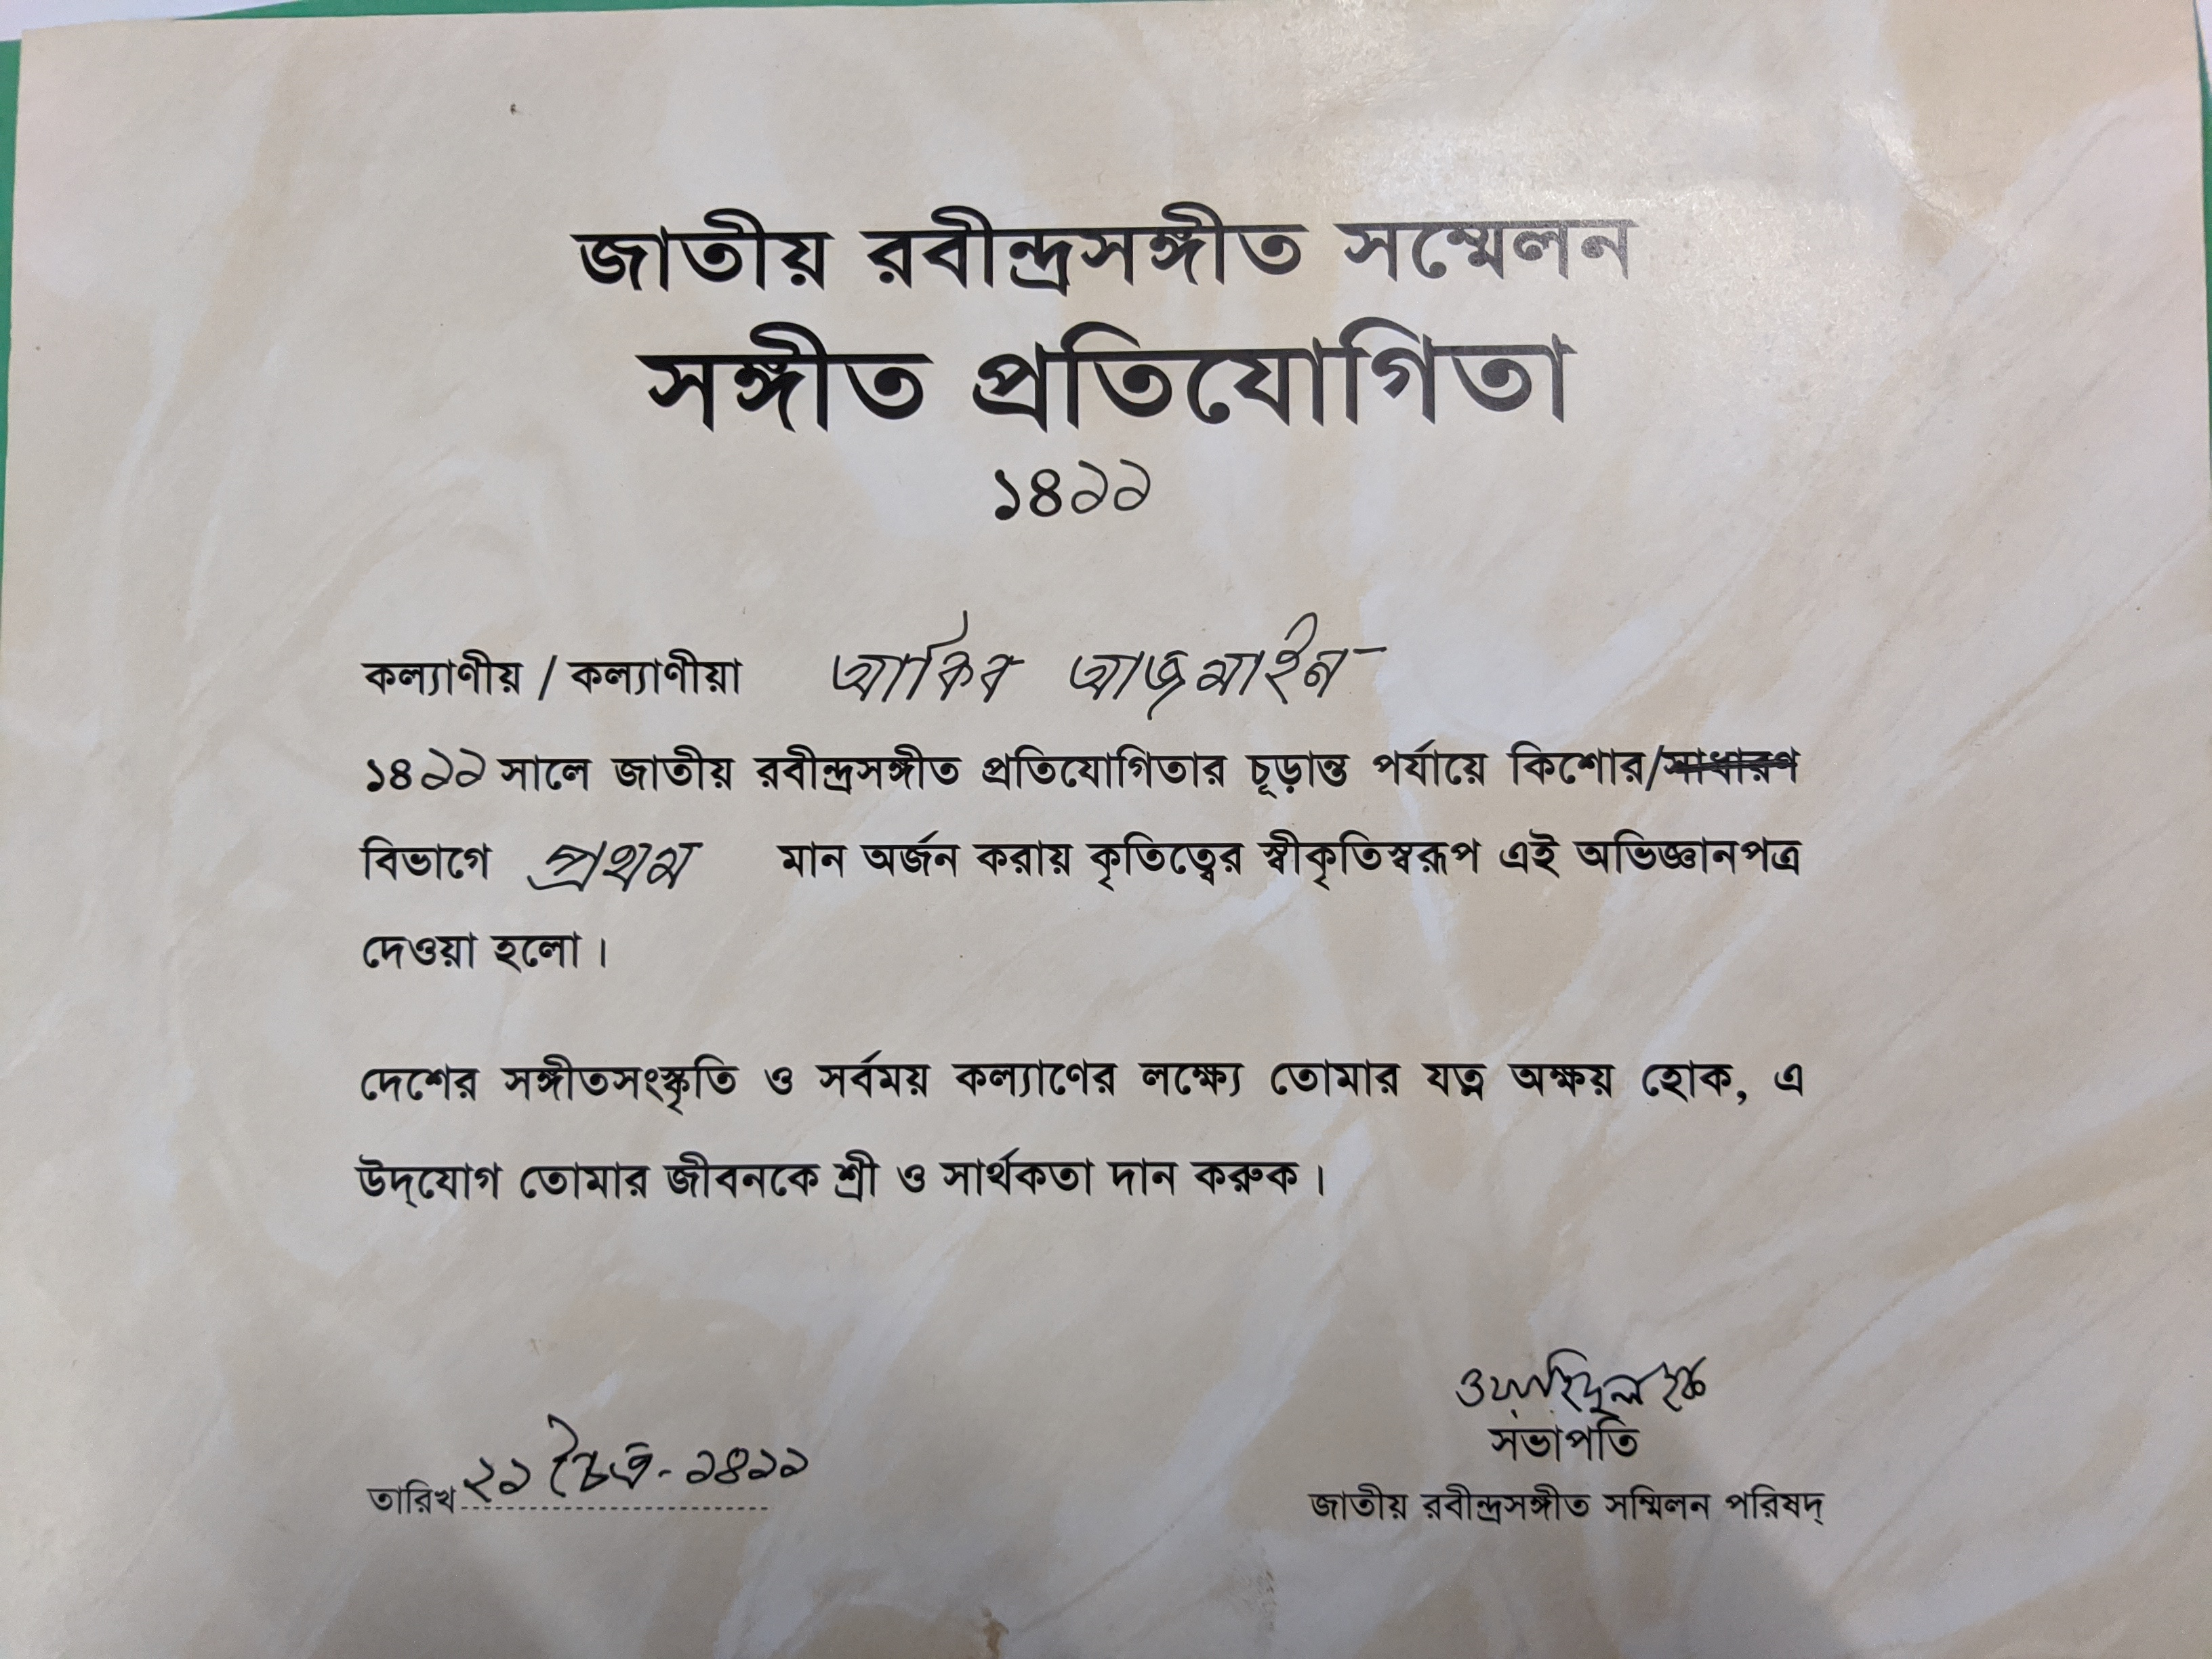 জাতীয় রবীন্দ্রসঙ্গীত সম্মেলন
সঙ্গীত প্রতিযোগিতা
১৪১১
কল্যাণীয় / কল্যাণীয়া আকিব আজমাইন
১৪১১ সালে জাতীয় রবীন্দ্রসঙ্গীত প্রতিযোগিতার চূড়ান্ত পর্যায়ে কিশোর/সাধারণ
বিভাগে প্রথম মান অর্জন করায় কৃতিত্বের স্বীকৃতিস্বরূপ এই অভিজ্ঞানপত্র
দেওয়া হলো।
দেশের সঙ্গীতসংস্কৃতি ও সর্বময় কল্যাণের লক্ষ্যে তোমার যত্ন অক্ষয় হোক, এ
উদ্‌যোগ তোমার জীবনকে শ্রী ও সার্থকতা দান করুক।
ওয়াহিদুল হক
সভাপতি
তারিখ ২১ চৈত্র - ১৪১১
জাতীয় রবীন্দ্রসঙ্গীত সম্মিলন পরিষদ্